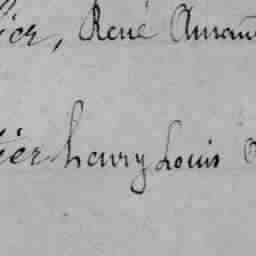 ier, René Amant
ier henry Louis